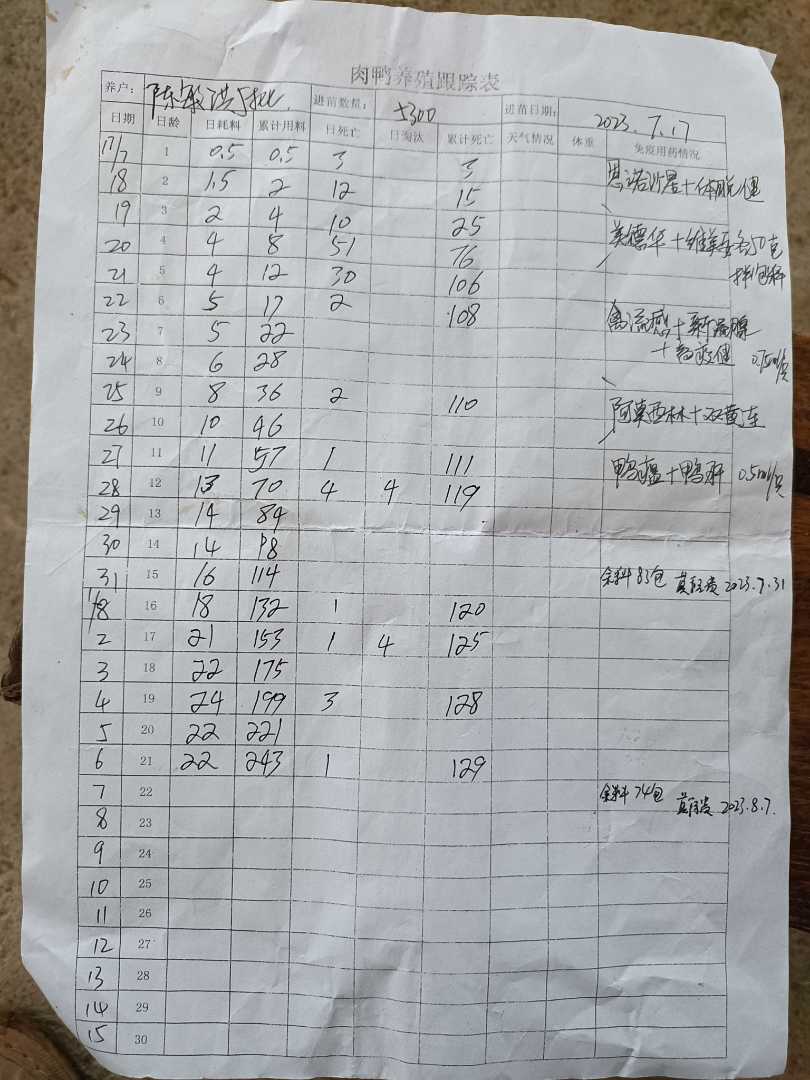 肉鸭养殖跟踪表
养户： 陈敏洪5批 进苗数量： 5300 进苗日期： 2023.7.17
日期 日龄 日耗料 累计用料 日死亡 日淘汰 累计死亡 天气情况 体重 免疫用药情况
17/7 1 0.5 0.5 3 3
18 2 1.5 2 12 15 恩诺沙星+体脱健
19 3 2 4 10 25
20 4 4 8 51 76 美德华+维 50克
21 5 4 12 30 106 拌1包料
22 6 5 17 2 108
23 7 5 22 禽流感+新
24 8 6 28 + 健 0.75ml/只
25 9 8 36 2 110
26 10 10 46 阿莫西林+双黄连
27 11 11 57 1 111
28 12 13 70 4 4 119 鸭瘟+鸭肝 0.5ml/只
29 13 14 84
30 14 14 98
31 15 16 114 余料83包 2023.7.31
1/8 16 18 132 1 120
2 17 21 153 1 4 125
3 18 22 175
4 19 24 199 3 128
5 20 22 221
6 21 22 243 1 129
7 22 余料74包 2023.8.7.
8 23
9 24
10 25
11 26
12 27
13 28
14 29
15 30